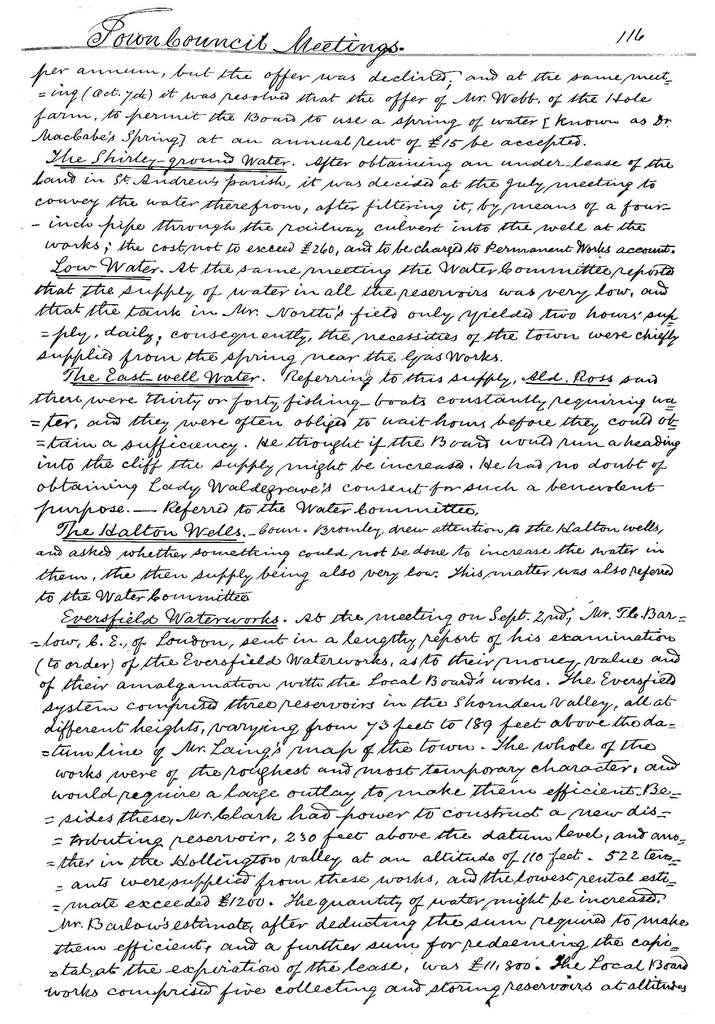 Town Council Meetings. 116
per annum, but the offer was declined; and at the same meet=
=ing (Oct. 7th) it was resolved that the offer of Mr. Webb. of the Hole
farm, to permit the Board to use a spring of water [known as Dr.
MacCabe's Spring] at an annual rent of £15 be accepted.
The Shirley-ground Water. After obtaining an under-lease of the
land in St. Andrew's parish, it was decided at the July meeting to
convey the water therefrom, after filtering it, by means of a four-
-inch pipe through the railway culvert into the well at the
works; the cost not to exceed £260, and to be charged to Permanent Works account.
Low Water. At the same meeting the Water Committee reported
that the supply of water in all the reservoirs was very low, and
that the tank in Mr. North's field only yielded two hours' sup=
=ply, daily; consequently, the necessities of the town were chiefly
supplied from the spring near the Gas Works.
The East-well Water. Referring to this supply, Ald. Ross said
there were thirty or forty fishing-boats constantly requiring wa=
=ter, and they were often obliged to wait hours before they could ob=
=tain a sufficiency. He thought if the Board would run a heading
into the cliff the supply might be increased. He had no doubt of
obtaining Lady Waldegrave's consent for such a benevolent
purpose. — Referred to the Water Committee.
The Halton Wells. - Coun. Bromley drew attention to the Halton wells,
and asked whether something could not be done to increase the water in
them, the then supply being also very low. This matter was also referred
to the Water Committee
Eversfield Waterworks. At the meeting on Sept. 2nd, Mr. T. C. Bar=
=low, C. E., of London, sent in a lengthy report of his examination
(to order) of the Eversfield Waterworks, as to their money value and
of their amalgamation with the Local Board's works. The Eversfield
system comprised three reservoirs in the Shornden Valley, all at
different heights, varying from 73 feet to 189 feet above the da=
=tum line of Mr. Laing's map of the town. The whole of the
works were of the roughest and most temporary character, and
would require a large outlay to make them efficient. Be=
= sides these, Mr. Clark had power to construct a new dis=
= tributing reservoir, 230 feet above the datum level, and ano=
= ther in the Hollington valley at an altitude of 110 feet. 522 ten=
= ants were supplied from these works, and the lowest rental esti=
= mate exceeded £1200. The quantity of water might be increased.
Mr. Barlow's estimate, after deducting the sum required to make
them efficient, and a further sum for redeeming the capi=
=tal, at the expiration of the lease, was £11,300. The Local Board
works comprised five collecting and storing reservoirs at altitudes